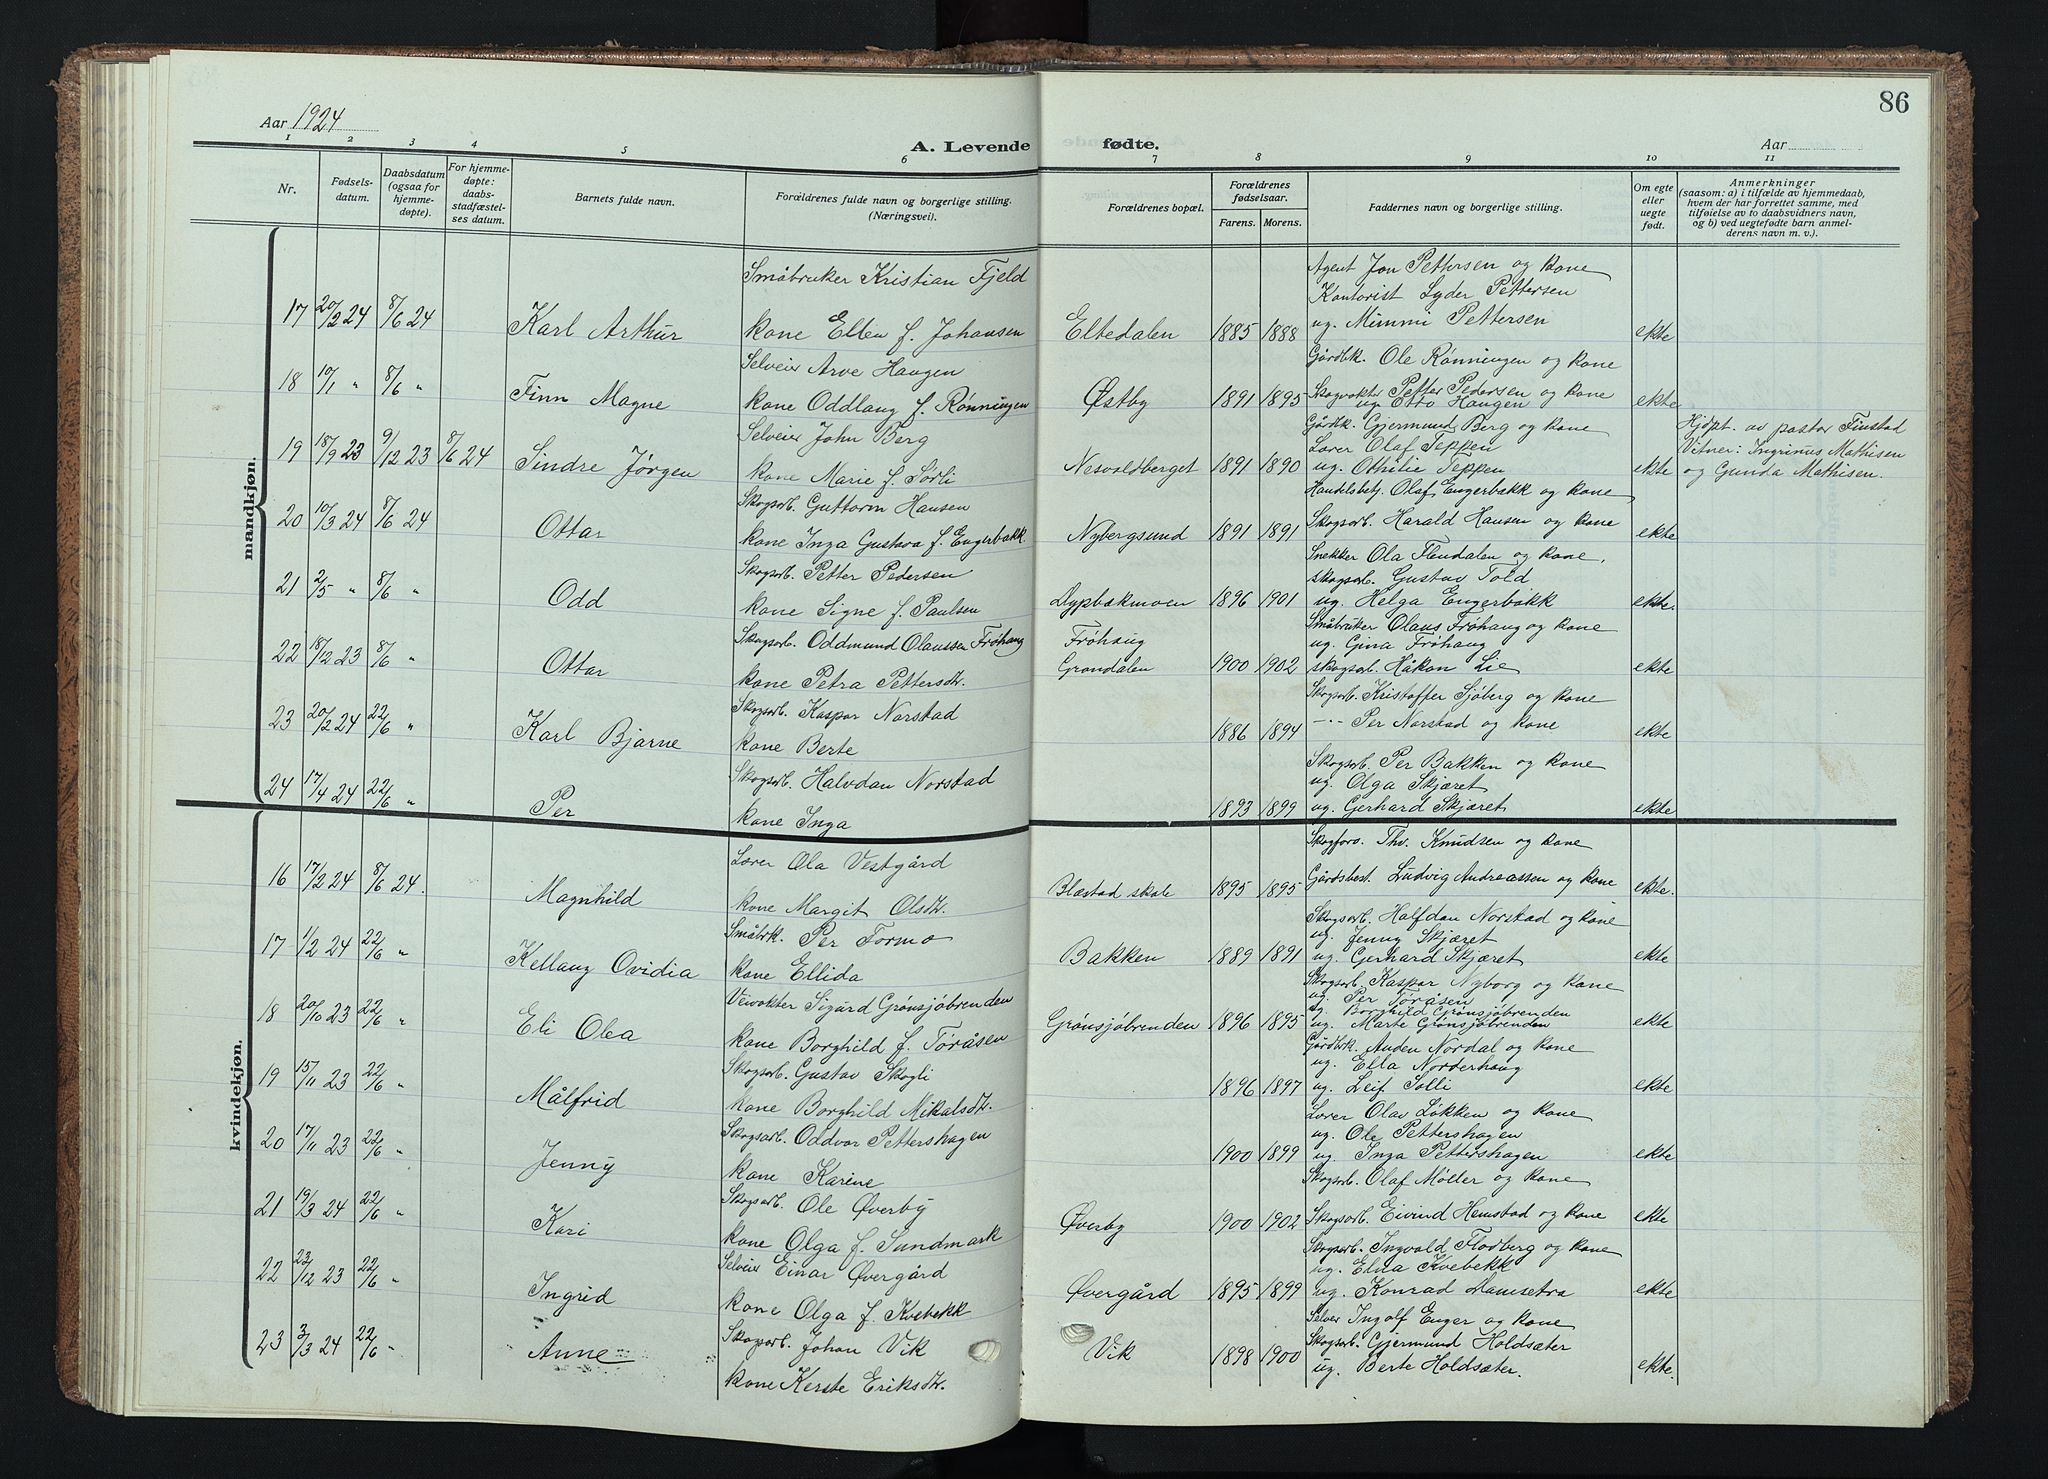 86
Aar 1924
A. Levende fødte.
Aar
1 2 3 4 5 6 7 8 9 10 11
Nr.
Fødsels-
datum.
Daabsdatum
(ogsaa for
hjemme-
døpte).
For hjemme-
døpte:
daabs-
stadfæstel-
ses datum.
Barnets fulde navn.
Forældrenes fulde navn og borgerlige stilling.
(Næringsvei).
Forældrenes bopæl.
Forældrenes
fødselsaar.
Farens. Morens.
Faddernes navn og borgerlige stilling.
Om egte
eller
uegte
født.
Anmerkninger
(saasom: a) i tilfælde av hjemmedaab,
hvem der har forrettet samme, med
tilføielse av to daabsvidners navn,
og b) ved uegtefødte barn anmel-
derens navn m. v.).
mandkjøn.
Småbruker Kristian Fjeld
Agent Jon Pettersen og kone
Kontorist Lyder Pettersen
17 20/2 24 8/6 24 Karl Arthur kone Ellen f. Johansen Eltedalen 1885 1888 ug. Mimmi Pettersen ekte
Selveier Arve Haugen
Gårdbk. Ole Rønningen og kone
18 10/1 " 8/6 " Finn Magne kone Oddlaug f. Rønningen Østby 1891 1895 Skogvokter Petter Pedersen og kone ekte
ug Otto Haugen
Selveier John Berg
Gårdbk. Gjermund Berg og kone
Hjdpt. av pastor Finstad
Lærer Olaf Teppen
Vitner: Ingrinus Mathisen
19 18/9 23 9/12 23 8/6 24 Sindre Jørgen kone Marie f. Sørli Nesvoldberget 1891 1890 ug. Othilie Teppen ekte og Gunda Mathisen.
Skogsarb. Guttorm Hansen
Handelsbetj. Olaf Engerbakk og kone
20 10/3 24 8/6 24 Ottar kone Inga Gustava f. Engerbakk. Nybergsund 1891 1891 Skogsarb. Harald Hansen og kone ekte
Skogsarb. Petter Pedersen
Snekker Ola Flendalen og kone,
skogsarb. Gustav Told
21 2/5 " 8/6 " Odd kone Signe f. Paulsen Dypbækmoen 1896 1901 ug. Helga Engerbakk ekte.
Skogsarb. Oddmund Olaussen Frøhaug
Frøhaug
Småbruker Olaus Frøhaug og kone
ug. Gina Frøhaug
22 18/12 23 8/6 " Ottar kone Petra Pettersdtr. Grøndalen 1900 1902 skogsarb. Håkon Lie ekte
Skogsarb. Kaspar Norstad
Skogsarb. Kristoffer Sjøberg og kone
23 20/2 24 22/6 " Karl Bjarne kone Berte 1886 1894 -"- Per Norstad og kone ekte
Skogsarb. Halvdan Norstad
Skogsarb. Per Bakken og kone
ug. Olga Skjæret
24 17/4 24 22/6 " Per kone Inga 1893 1899 ug. Gerhard Skjæret ekte
kvindekjøn.
Lærer Ola Vestgård
Skogforv. Thv. Knudsen og kone
16 17/2 24 8/6 24. Magnhild kone Margit Olsdtr. Blæstad skole 1895 1895 Gårdsbest. Ludvig Andreassen og kone ekte.
Småbrk. Per Tormo
Skogsarb. Halfdan Norstad og kone
ug. Jenny Skjæret
17 1/2 24 22/6 " Kellaug Ovidia kone Ellida Bakken 1889 1891 ug. Gerhard Skjæret ekte
Veivokter Sigurd Grønsjøbrenden
Skogsarb. Kaspar Nyborg og kone
ug. Per Toråsen
ug. Borghild Grønsjøbrenden
18 20/10 23 22/6 " Eli Olea kone Borghild f. Toråsen Grønsjøbrenden 1896 1895 ug. Marte Grønsjøbrenden ekte
Skogsarb. Gustav Skogli
Gårdbrk. Anden Nordal og kone
ug. Ella Norderhaug
19 15/11 23 22/6 " Målfrid kone Borghild Mikalsdtr. 1896 1897 ug. Leif Solli ekte
Skogsarb. Oddvar Pettershagen
Lærer Olav Løkken og kone
ug. Ole Pettershagen
20 17/11 23 22/6 " Jenny kone Karine 1900 1899 ug. Inga Pettershagen ekte
Skogsarb. Ole Øverby
Skogsarb. Olaf Møller og kone
21 19/3 24 22/6 " Kari kone Olga f. Sundmark Øverby 1900 1902 Skogsarb. Eivind Hemstad og kone ekte
Selveier Einar Øvergård
Skogsarb. Ingvald Flodberg og kone
ug. Elna Kvebekk
22 23/12 23 22/6 " Ingrid kone Olga f. Kvebekk Øvergård 1895 1899 ug. Konrad Hamsetra ekte
Skogsarb. Johan Vik
Selveier Ingolf Enger og kone
Skogsarb. Gjermund Holdsæter
23 3/3 24 22/6 " Anne kone Kerste Eriksdtr. Vik 1898 1900 ug. Berte Holdsæter. ekte.